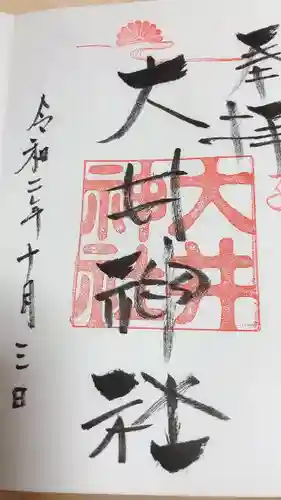 奉拝
大井神社
大井神社
令和二年十月三日